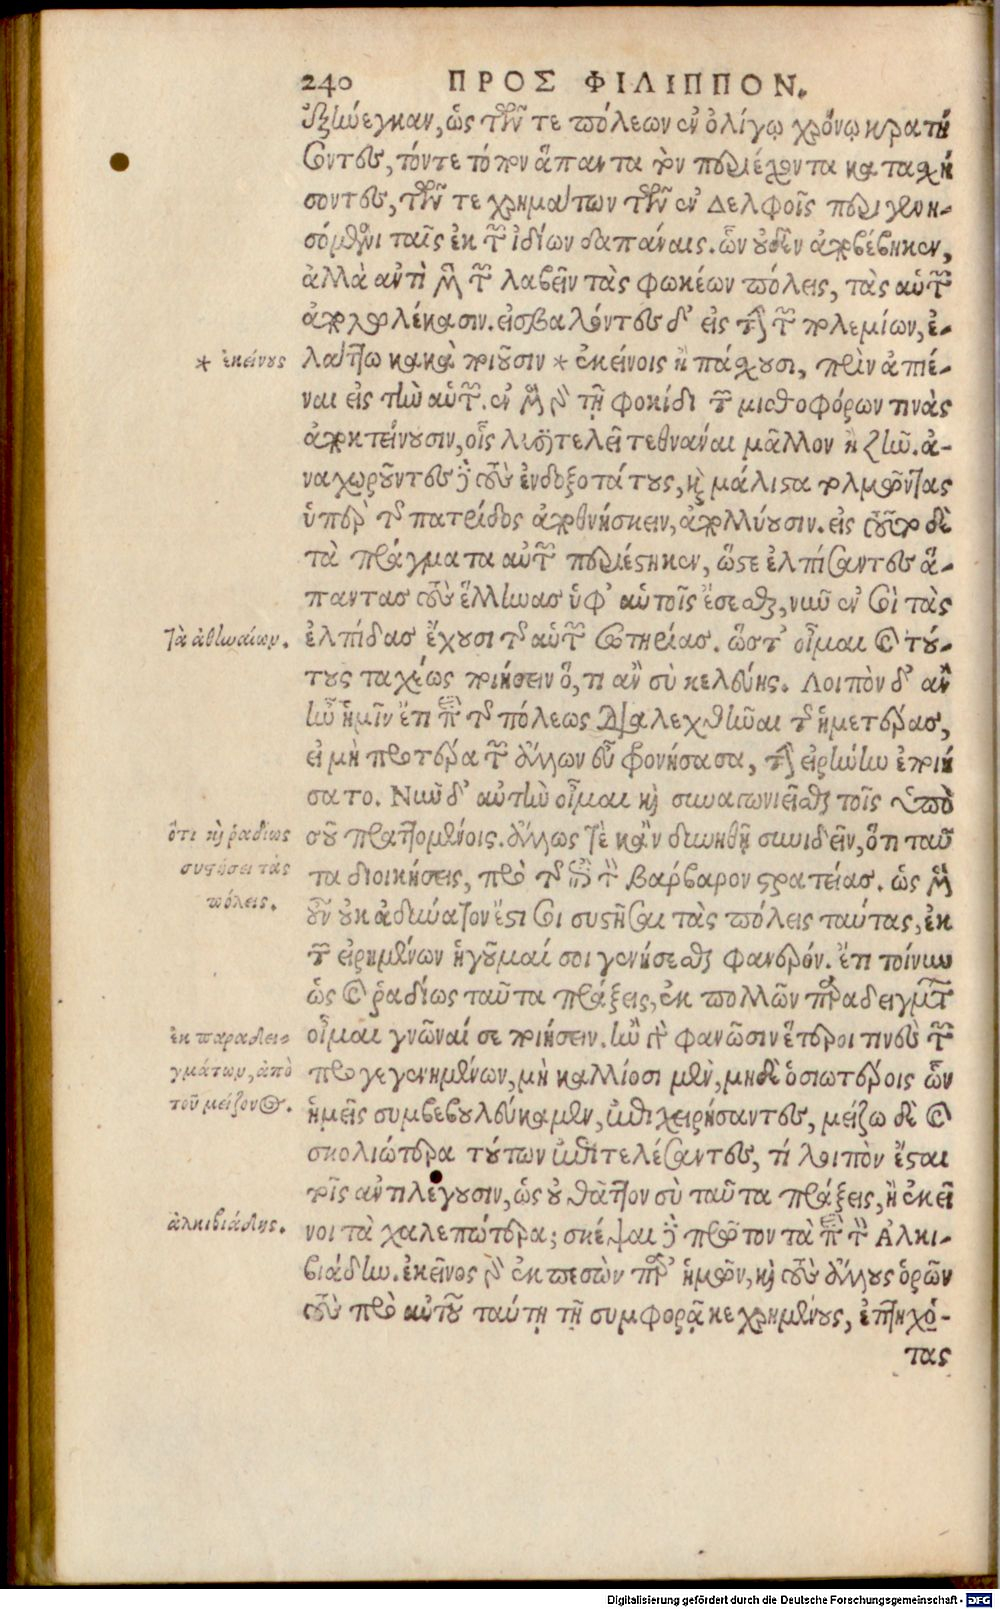 240 ΠΡΟΣ ΦΙΛΙΠΠΟΝ.
ἐξήνεγκαν, ὡς τῶν τε πόλεων ἐν ὀλίγῳ χρόνῳ κρατή
σοντες, τόν τε τόπον ἅπαντα τὸν περιέχοντα κατασχή
σοντες, τῶν τε χρημάτων τῶν ἐν Δελφοῖς περιγενη-
σόμενοι ταῖς ἐκ τῶν ἰδίων δαπάναις. ὧν οὐδὲν ἀποβέβηκεν,
ἀλλὰ ἀντὶ μὲν τοῦ λαβεῖν τὰς φωκέων πόλεις, τὰς αὑτῶν
ἀπολωλέκασιν. εἰσβαλόντες δ' εἰς τὴν τῶν πολεμίων, ἐ-
* ἐκείνους
λάττω κακὰ ποιοῦσιν * ἐκείνοις ἢ πάσχουσι, πρὶν ἀπιέ-
ναι εἰς τὴν αὑτῶν. ἐν μὲν γὰρ τῇ φοκίδι τῶν μισθοφόρων τινὰς
ἀποκτείνουσιν, οἷς λυσιτελεῖ τεθνάναι μᾶλλον ἢ ζῆν. ἀ-
ναχωροῦντες δὲ τοὺς ἐνδοξοτάτους, καὶ μάλιστα τολμῶντας
ὑπὲρ τῆς πατρίδος ἀποθνήσκειν, ἀπολλύουσιν. εἰς τοῦτο δὲ
τὰ πράγματα αὐτῶν περιέστηκεν, ὥστε ἐλπίσαντες ἅ-
παντας τοὺς ἕλληνας ὑφ' αὑτοῖς ἔσεσθαι, νῦν ἐν σοὶ τὰς
Τὰ ἀθηναίων.
ἐλπίδας ἔχουσι τῆς αὑτῶν σωτηρίας. ὥστ' οἶμαι καὶ τού-
τους ταχέως ποιήσειν ὅ, τι ἂν σὺ κελεύῃς. Λοιπὸν δ' ἂν
ἦν ἡμῖν ἔτι περὶ τῆς πόλεως διαλεχθῆναι τῆς ἡμετέρας,
εἰ μὴ προτέρα τῶν ἄλλων εὖ φρονήσασα, τὴν εἰρήνην ἐποιή
σατο. Νῦν δ' αὐτὴν οἶμαι καὶ συναγωνιεῖσθαι τοῖς ὑπὸ
ὅτι καὶ ῥᾳδίως
συστήσει τὰς
πόλεις.
σοῦ πραττομένοις. ἄλλως τε κἂν δυνηθῇ συνιδεῖν, ὅτι ταῦ
τα διοικήσεις, πρὸ τῆς ἐπὶ τὸν βάρβαρον στρατείας. ὡς μὲν
οὖν οὐκ ἀδύνατον ἔστι σοι συστῆσαι τὰς πόλεις ταύτας, ἐκ
τῶν εἰρημένων ἡγοῦμαί σοι γενήσεσθαι φανερόν. ἔτι τοίνυν
ὡς καὶ ῥᾳδίως ταῦτα πράξεις, ἐκ πολλῶν παραδειγμάτων
ἐκ παραδει-
γμάτων, ἀπὸ
τοῦ μείζονος.
οἶμαι γνῶναί σε ποιήσειν. ἢν γὰρ φανῶσιν ἕτεροι τινὲς τῶν
προγεγενημένων, μὴ καλλίοσι μὲν, μηδὲ ὁσιωτέροις ὧν
ἡμεῖς συμβεβουλεύκαμεν, ἐπιχειρήσαντες, μείζω δὲ καὶ
σκολιώτερα τούτων ἐπιτελέσαντες, τί λοιπὸν ἔσται
τοῖς ἀντιλέγουσιν, ὡς οὐ θᾶττον σὺ ταῦτα πράξεις, ἢ ἐκεῖ
ἀλκιβιάδης.
νοι τὰ χαλεπώτερα; σκέψαι δὲ πρῶτον τὰ περὶ τὸν Ἀλκι-
βιάδην. ἐκεῖνος γὰρ ἐκπεσὼν παρ' ἡμῶν, καὶ τοὺς ἄλλους ὁρῶν
τοὺς πρὸ αὐτοῦ ταύτῃ τῇ συμφορᾷ κεχρημένους, ἐπτηχό-
τας
Digitalisierung gefördert durch die Deutsche Forschungsgemeinschaft - DFG